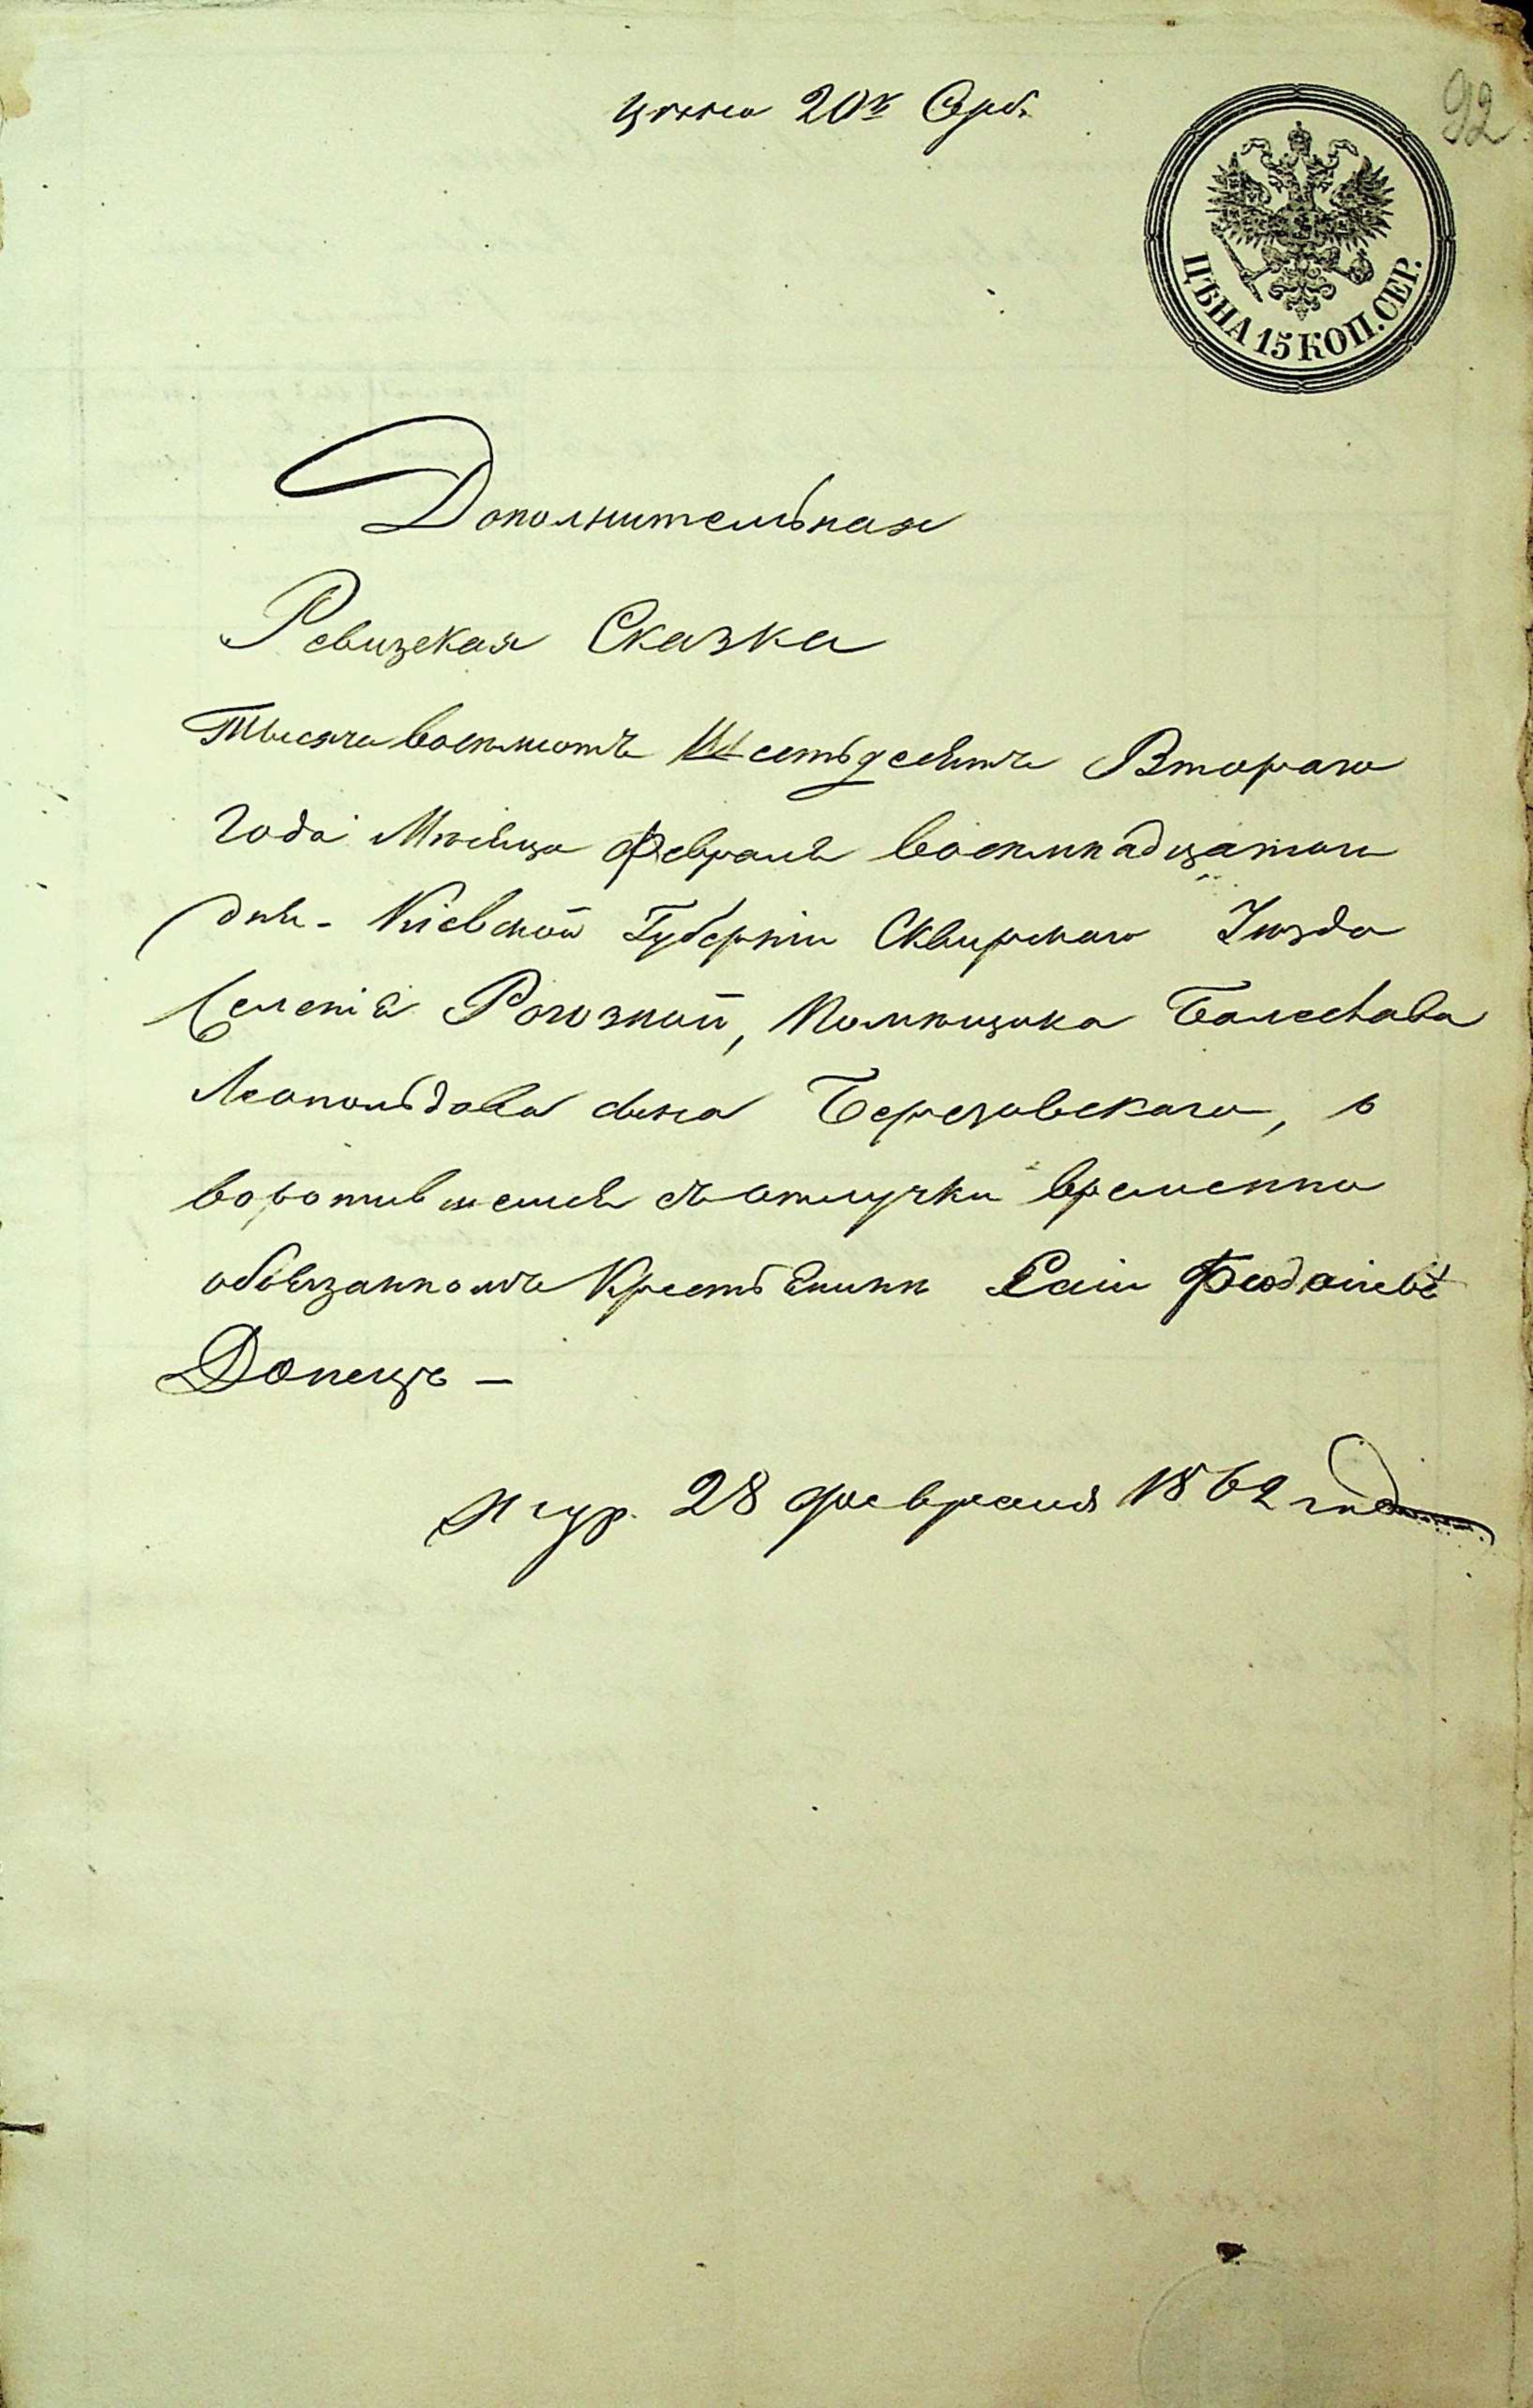 цѣна 20 к Сереб.
92
ЦѢНА 15 КОП. СЕР.
Дополнительная
Ревизская Сказка
Тысяча восемьсотъ Шестьдесятъ Втораго
Года Мѣсяца Февраля восемнадцатаго
дня - Кіевской Губерніи Сквирскаго Уѣзда
Селенія Рогозной, Помѣщика Болеслава
Леопольдова сына Березовскаго, о
воротившемся съ отлучки временно
обязанномъ Крестьянинѣ
Донецъ -
28 февраля 1862 года